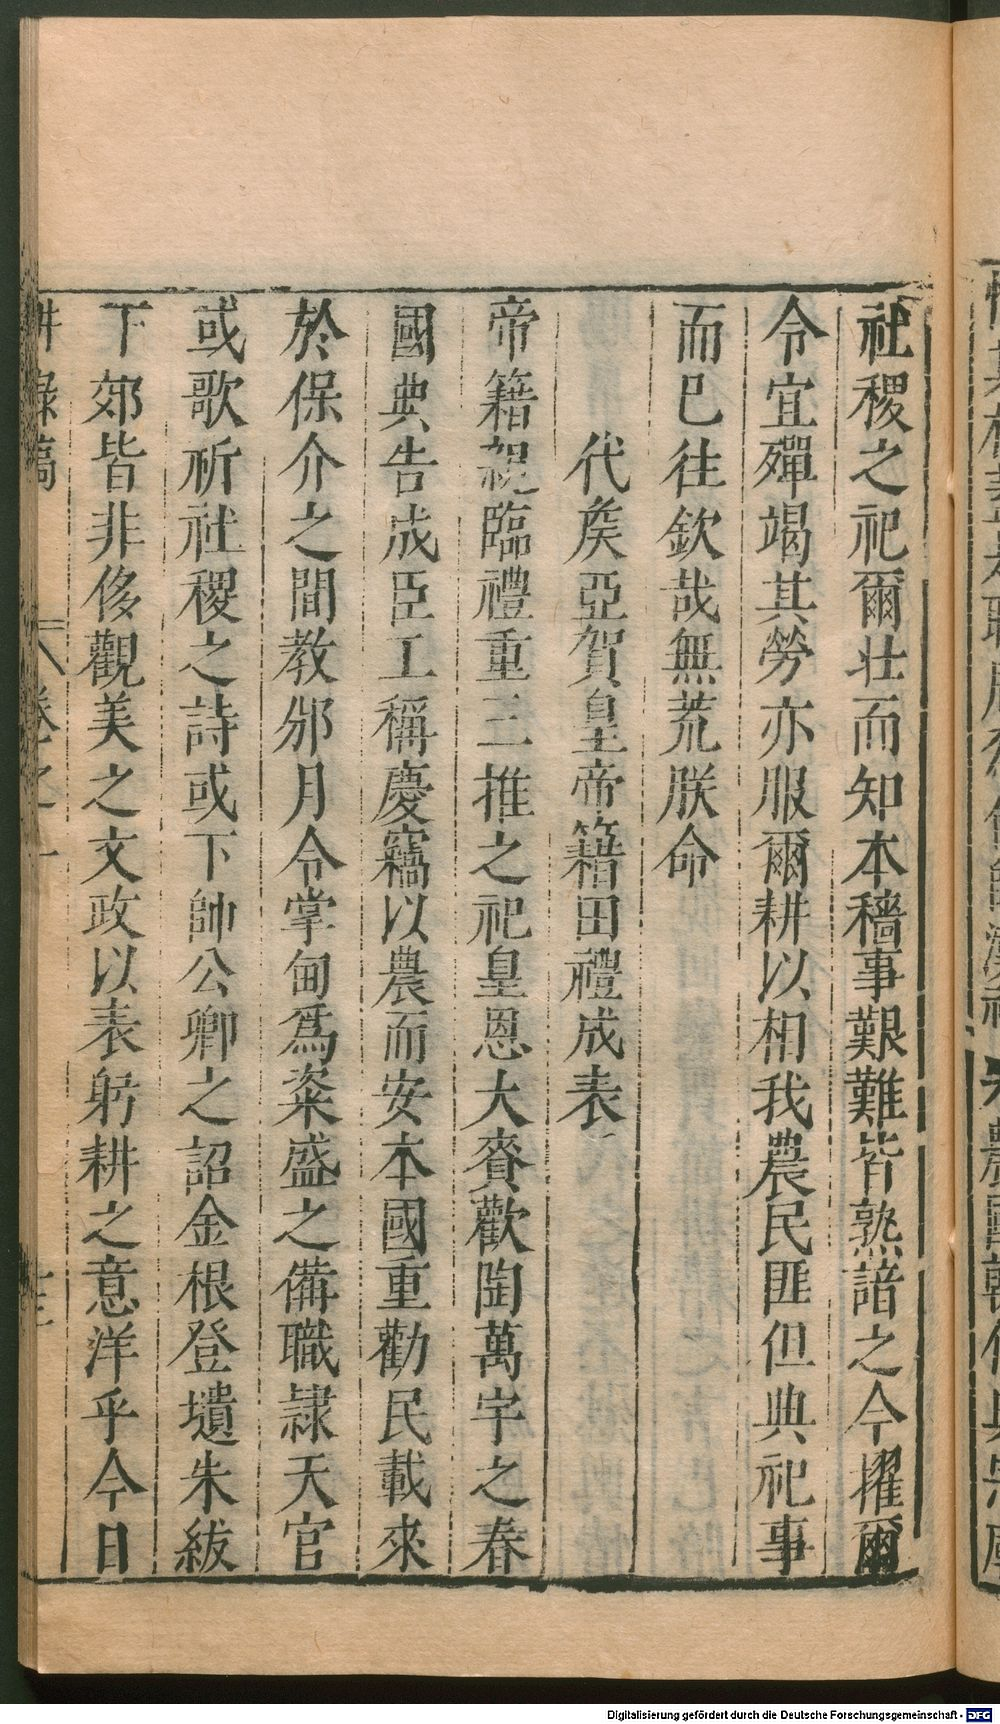 社稷之祀爾壮而知本穡事艱難皆熟諳之今擢爾
令宜殫竭其勞亦服爾耕以相我農民匪但典祀事
而巳往欽哉無荒朕命
代矦亞賀皇帝籍田禮成表
帝籍祝臨禮重三推之祀皇恩大賚歡陶萬宇之春
國典告成臣工稱慶竊以農而安本國重勸民載來
於保介之間教邠月令掌甸爲粢盛之備職隷天官
或歌祈社稷之詩或下帥公卿之詔金根登壝朱紱
下郊皆非侈觀美之文政以表躬耕之意洋乎今日
耕錄稿 卷之一
Digitalisierung gefördert durch die Deutsche Forschungsgemeinschaft - DFG